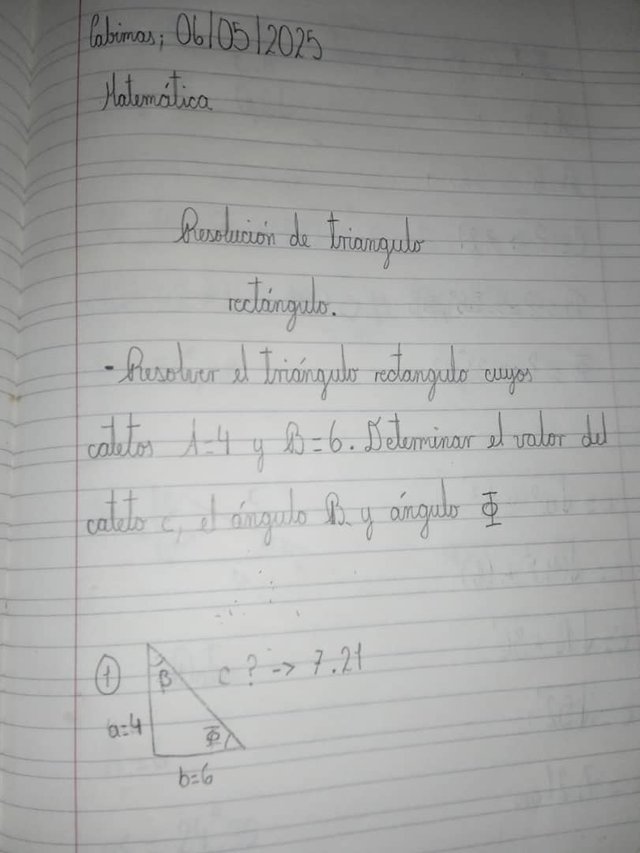 Cabimas; 06/05/2025
Matemática
Resolución de triangulo
rectángulo.
- Resolver el triángulo rectangulo cuyos
catetos A=4 y B=6. Determinar el valor del
cateto c, el ángulo B y ángulo Φ
① β c ? → 7.21
a=4 Φ
b=6